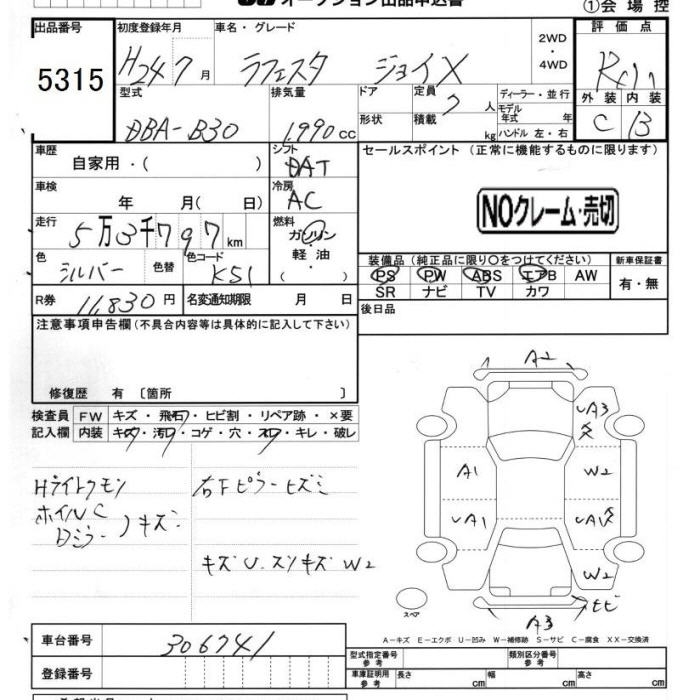 オークション出品申込書
①会場控
出品番号
5315
初度登録年月
H24 7月
車名・グレード
ラフェスタ ジョイX
2WD・4WD
評価点
外装 内装
C B
型式
DBA-B30
排気量
1,990cc
ドア
形状
定員
7人
積載
kg
ディーラー・並行
モデル年式 年
ハンドル 左・右
車歴
自家用・( )
シフト
DAT
セールスポイント(正常に機能するものに限ります)
NOクレーム・売切
車検
年 月( 日)
冷房
AC
走行
5万3千797km
燃料
ガソリン・軽油・( )
色
シルバー
色替
色コード
K51
装備品(純正品に限り○をつけてください)
PS PW ABS エアB AW
SR ナビ TV カワ
新車保証書
有・無
R券
11,830円
名変通知期限 月 日
後日品
注意事項申告欄(不具合内容等は具体的に記入して下さい)
修復歴 有〔箇所 〕
検査員記入欄
FW キズ・飛石・ヒビ割・リペア跡・×要
内装 キズ・汚レ・コゲ・穴・スレ・キレ・破レ
Hライトクモリ
ホイルC
Dミラーキズ
右Fピラーヒズミ
キズU.スリキズ W2
A2
UA3
A1
W2
UA1
W2
A3
ヒビ
スペア
A-キズ E-エクボ U-凹み W-補修跡 S-サビ C-腐食 XX-交換済
車台番号
306741
登録番号
型式指定番号 参考
類別区分番号 参考
車庫証明用 参考
長さ cm 幅 cm 高さ cm